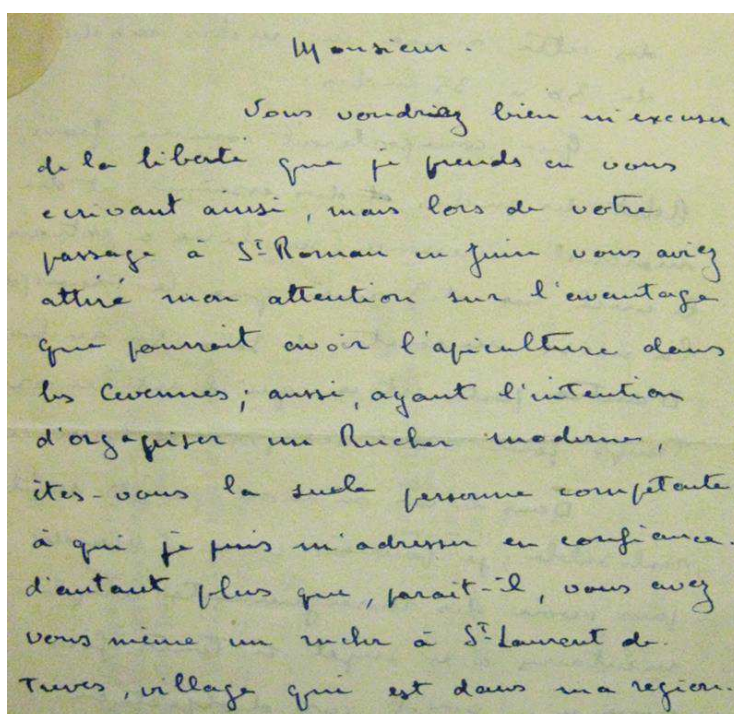 Monsieur.
Vous voudriez bien m'excuser
de la liberté que je prends en vous
ecrivant ainsi, mais lors de votre
passage à St Roman en Juin vous aviez
attiré mon attention sur l'avantage
que pourrait avoir l'apiculture dans
les Cevennes; aussi, ayant l'intention
d'organiser un Rucher moderne,
êtes-vous la suele personne compétante
à qui je puis m'adresser en confiance.
d'autant plus que, parait-il, vous avez
vous même un rucher à St Laurent de
Treves, village qui est dans ma region.